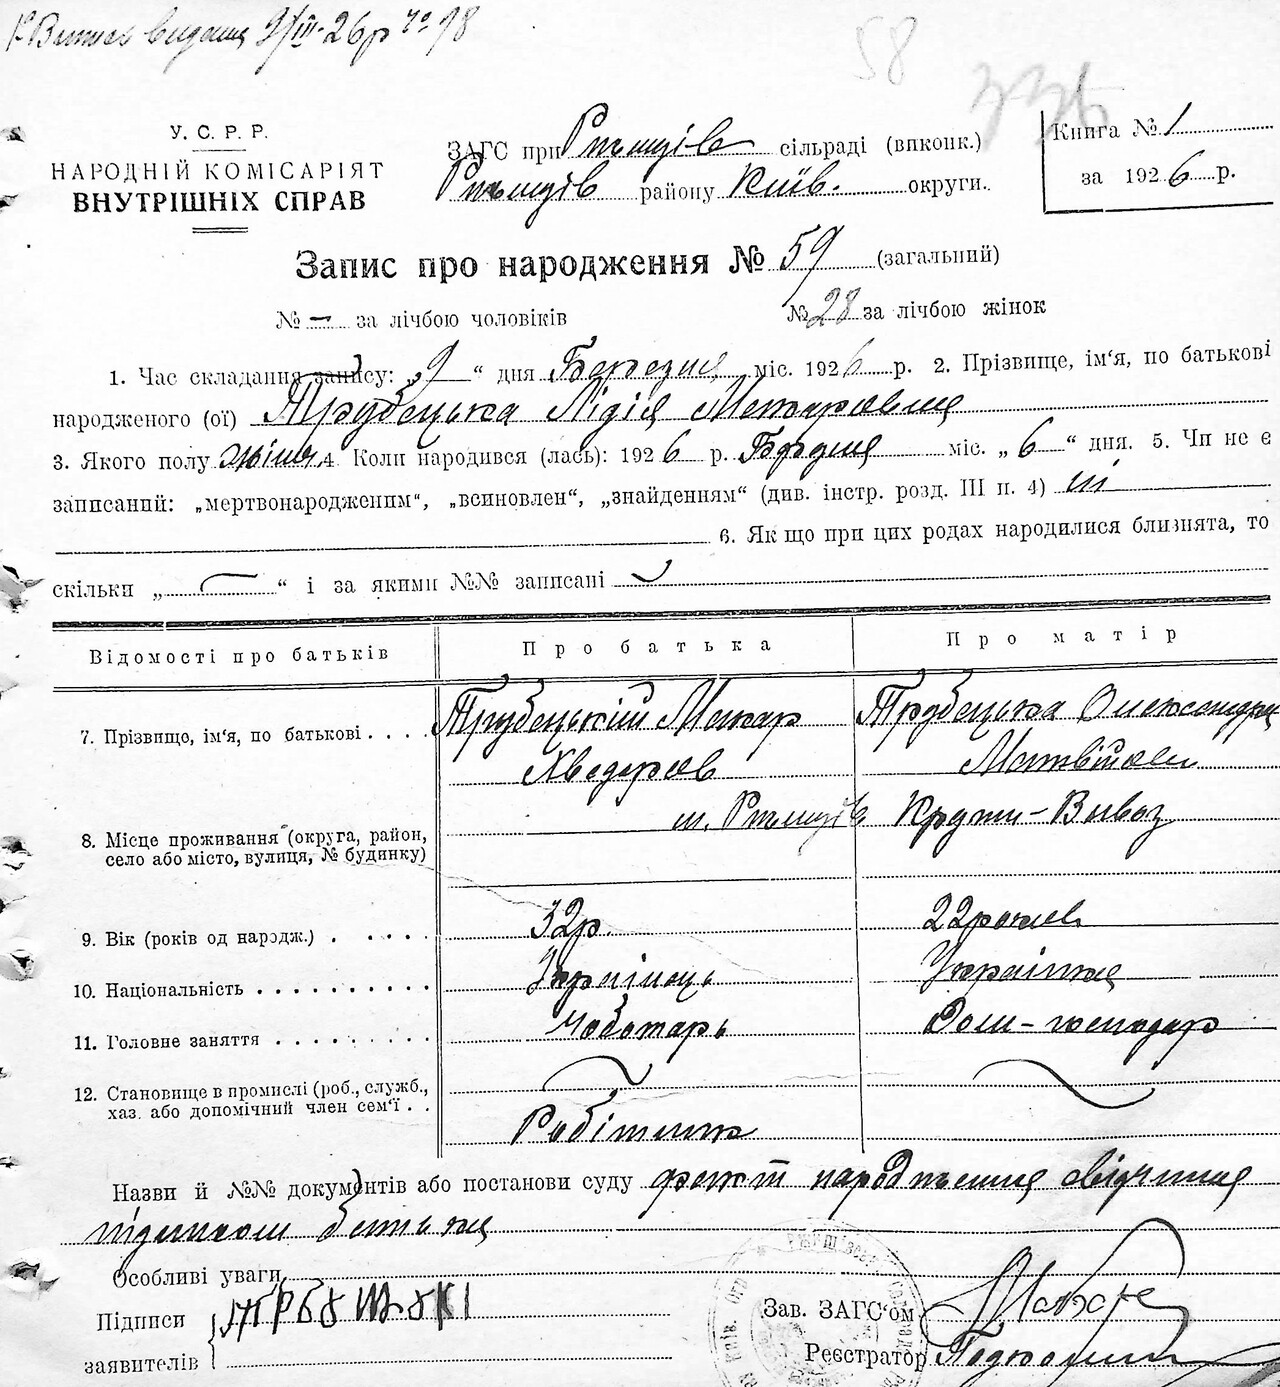 Витяг видано 9/III-26р № 98
58
У. С. Р. Р.
НАРОДНІЙ КОМІСАРІЯТ
ВНУТРІШНІХ СПРАВ
ЗАГС при Ржищів сільраді (впконк.)
Ржищів району Київ. округи.
Книга № 1
за 1926 р.
Запис про народження № 59 (загальний)
№ — за лічбою чоловіків
№ 28 за лічбою жінок
1. Час складання запису: „9“ дня Березня міс. 1926 р. 2. Прізвище, ім‘я, по батькові
народженого (ої) Трубецька Лідія Макаровна
3. Якого полу жіноч. 4 Коли народився (лась): 1926 р. Березня міс. „6“ дня. 5. Чи не є
записаний: „мертвонародженим“, „всиновлен“, „знайденням“ (див. інстр. розд. III п. 4) ні
6. Якщо при цих родах народилися близнята, то
скільки „—“ і за якими №№ записані —
Відомості про батьків
Про батька
Про матір
7. Прізвищо, ім‘я, по батькові . . . .
Трубецькій Макар
Хведоров
Трубецька Олександра
Матвійовн
8. Місце проживання (округа, район,
село або місто, вулиця, № будинку)
м. Ржищів Крути-Вывоз
9. Вік (років од народж.) . . . . .
32р.
22років
10. Національність . . . . . . . . . .
Українець
Українка
11. Головне заняття . . . . . . . . .
Чоботарь
Дом-господар
12. Становище в промислі (роб., служб.,
хаз. або допомічний член сем‘ї . .
Робітник
Назви й №№ документів або постанови суду факт народження свідчиния
підписом батька
Особливі уваги
Підписи
заявителів
Зав. ЗАГС‘ом
Реєстратор